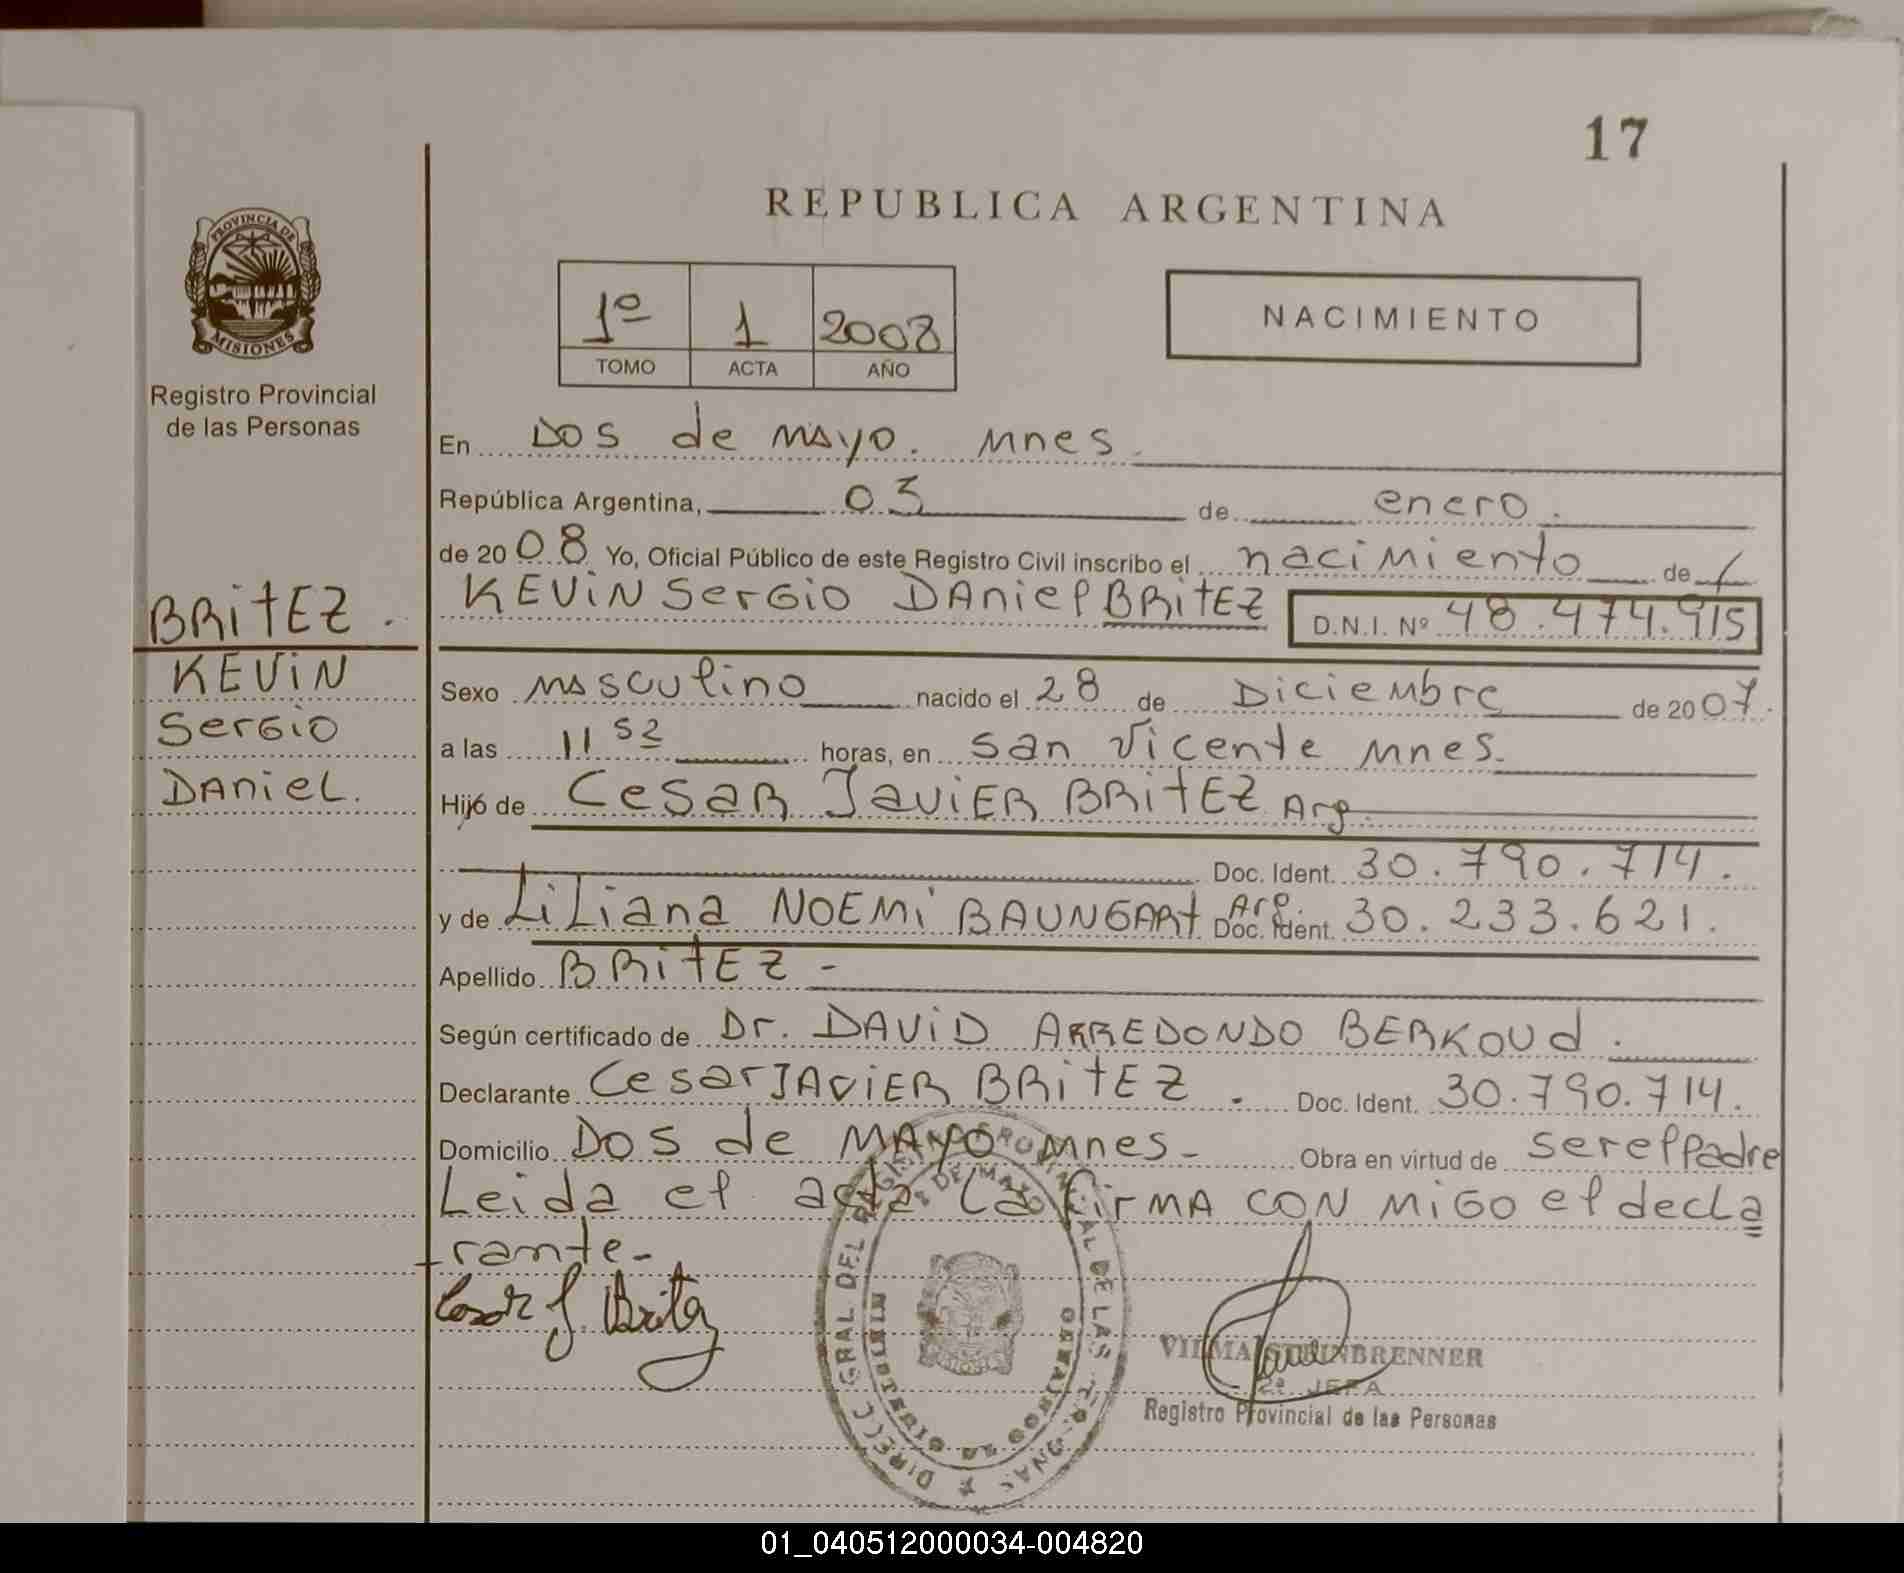 17
REPUBLICA ARGENTINA
PROVINCIA DE
MISIONES
Registro Provincial
de las Personas
1º 1 2008
TOMO ACTA AÑO
NACIMIENTO
En Dos de mayo. mnes.
República Argentina, 03 de enero.
de 2008 Yo, Oficial Público de este Registro Civil inscribo el nacimiento de
KEViN SerGio DAniel BRitEZ D.N.I. Nº 48.474.915
BRitEZ.
KEViN
SerGio
DAnieL.
Sexo masculino nacido el 28 de Diciembre de 2007.
a las 11 52 horas, en san Vicente mnes.
Hijo de CeSAR JaviER BRitEZ Arg.
Doc. Ident. 30.790.714.
y de LiLiana NOEMi BAUNGARt Arg. Doc. Ident. 30.233.621.
Apellido BRitEZ -
Según certificado de Dr. DAViD ARREDONDO BERKOUd.
Declarante CesarJAViER BRitEZ. Doc. Ident. 30.790.714.
Domicilio Dos de MAYO mnes - Obra en virtud de ser el Padre
Leida el acta La firMA CON MiGO el decla
rante-
Cesar J. Britez
VILMA STEINBRENNER
2ª JEFA
Registro Provincial de las Personas
DIRECC GRAL DEL REGISTRO PROVINCIAL DE LAS PERSONAS
DOS DE MAYO
MINISTERIO DE GOBIERNO
01_040512000034-004820